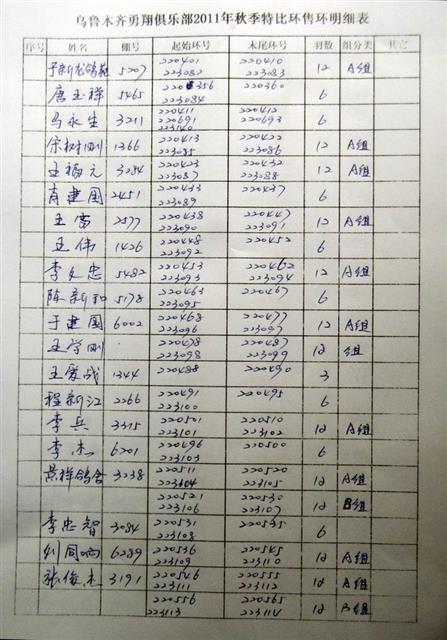 乌鲁木齐勇翔俱乐部2011年秋季特比环售环明细表
序号 姓名 棚号 起始环号 末尾环号 羽数 组分类 其它
于新龙鸽苑 5207 220401 220410 12 A组
223082 223083
唐玉祥 5465 220356 220360 6
223084
马永生 3211 220411 220412 6
220691 220693
223140
宋树刚 1366 220413 220422 12 A组
223085 223086
王福元 3284 220423 220432 12 A组
223087 223088
肖建国 2451 220433 220437 6
223089
王雷 2577 220438 220447 12 A组
223090 223091
王伟 1426 220448 220452 6
223092
李文忠 5482 220453 220462 12 A组
223093 223094
陈新和 5178 220463 220467 6
223095
于建国 6002 220468 220477 12 A组
223096 223097
王学刚 220478 220487 12 组
223098 223099
王爱战 1344 220488 220490 3
程新江 2266 220491 220495 6
223100
李兵 3315 220501 220510 12 A组
223101 223102
李杰 6201 220496 220500 6
223103
景祥鸽舍 3238 220511 220520 12 A组
223104 223105
220521 220530 12 B组
223106 223107
李忠智 3084 220531 220535 6
223108
刘同响 6289 220536 220545 12 A组
223109 223110
张俊杰 3191 220546 220555 12 A组
223111 223112
220556 220565 12 B组
223113 223114